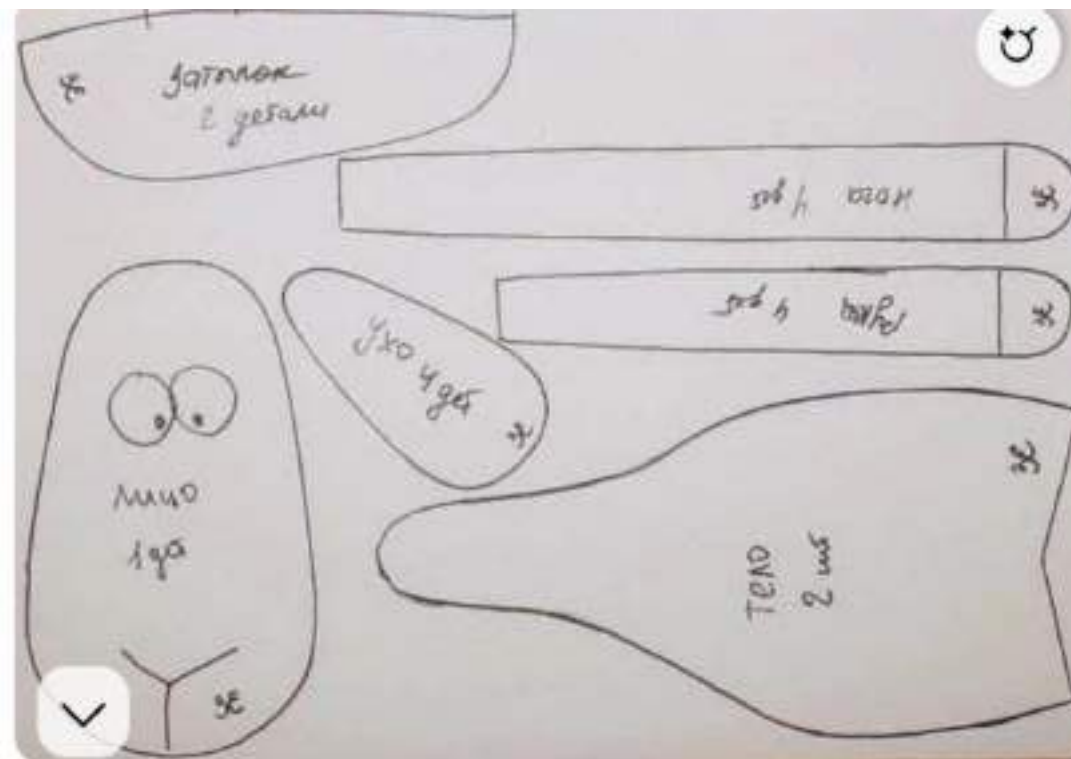 затылок
2 детали
нога 4 дет
Ручки 4 дет
Ухо 4 дет
лицо
1 дет
тело
2 шт